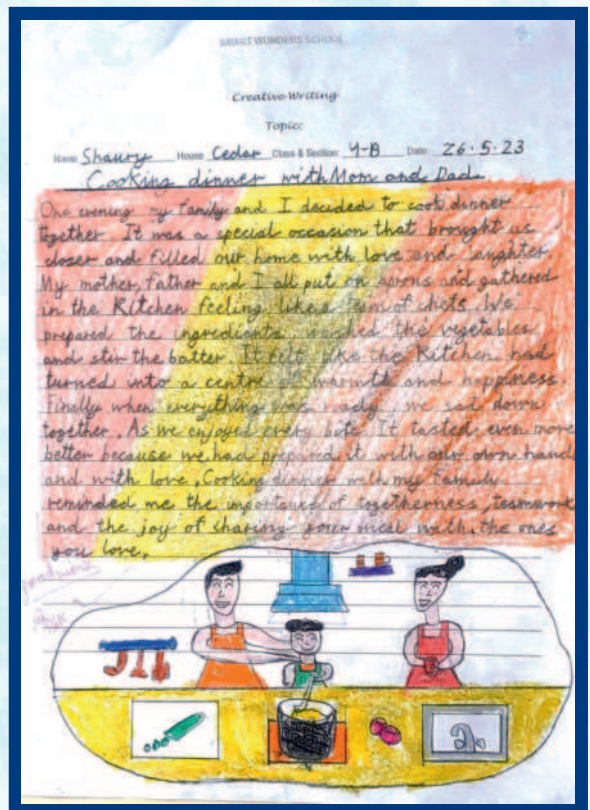 SMART WONDERS SCHOOL
Creative Writing
Topic:
Name Shaury House Cedar Class & Section: 4-B Date: 26.5.23
Cooking dinner with Mom and Dad.
One evening my family and I decided to cook dinner
together It was a special occasion that brought us
closer and filled our home with love and laughter.
My mother, father and I all put on aprons and gathered
in the Kitchen feeling like a team of chefs. We
prepared the ingredients, washed the vegetables
and stir the batter. It felt like the Kitchen had
turned into a centre of warmth and happiness.
Finally when everything was ready, we sat down
together. As we enjoyed every bite. It tasted even more
better because we had prepared it with our own hand
and with love. Cooking dinner with my family
reminded me the importance of togetherness, teamwork
and the joy of sharing your meal with the ones
you love.
Good work